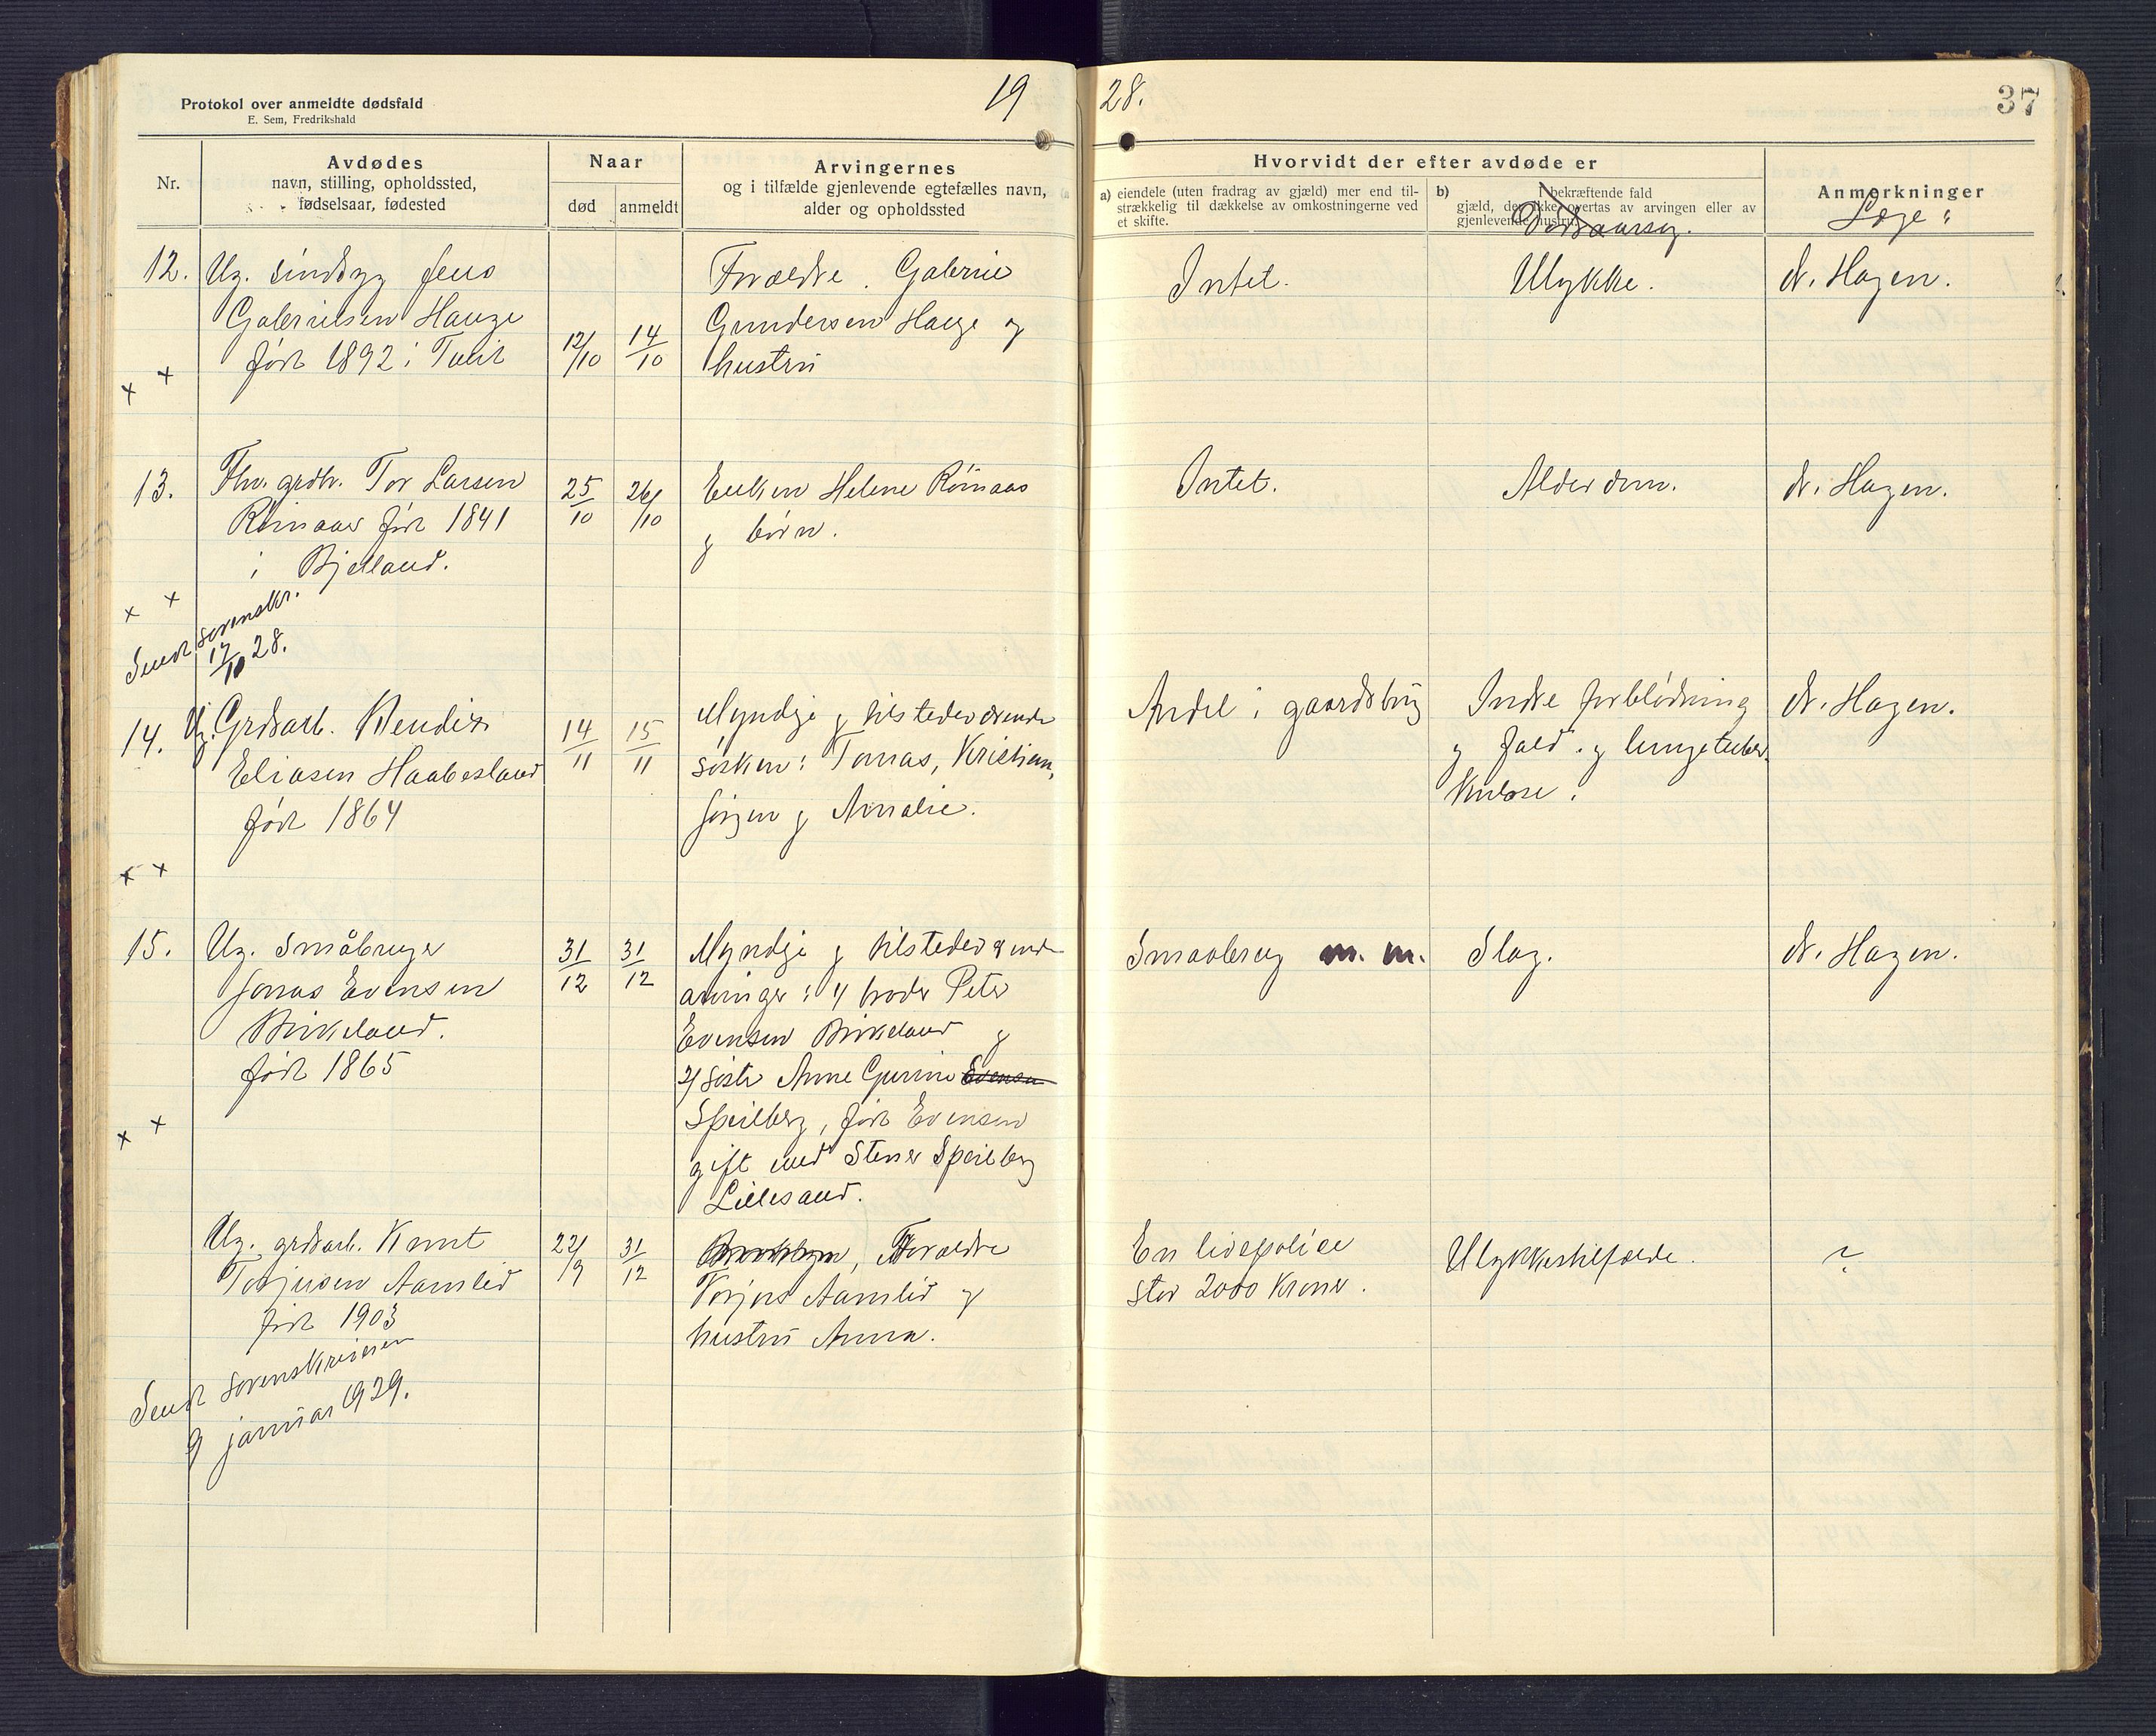 Protokol over anmeldte dødsfald
E. Sem, Fredrikshald
19 28.
37
Nr.
Avdødes
navn, stilling, opholdssted,
fødselsaar, fødested
Naar
død
anmeldt
Arvingernes
og i tilfælde gjenlevende egtefælles navn,
alder og opholdssted
Hvorvidt der efter avdøde er
a) eiendele (uten fradrag av gjæld) mer end til-
strækkelig til dækkelse av omkostningerne ved
et skifte.
b) I bekræftende fald
gjæld, der ikke overtas av arvingen eller av
gjenlevende hustru
Dødsaarsag.
Anmerkninger
Læge:
12.
Ug. sindsyg Jens
Gabrielsen Hauge
født 1892 i Tveit
12/10
14/10
Forældre. Gabriel
Gundersen Hauge og
hustru
Intet.
Ulykke.
dr. Hagen.
13.
Fhv. grdbr. Tor Larsen
født 1841
i Bjelland.
25/10
26/10
Enken Helene
og børn.
Intet.
Alderdom.
dr. Hagen.
Sendt sorenskr.
28.
14.
Ug. Grdsarb. Bendix
Eliasen Haabesland
født 1864
14/11
15/11
Myndige og tilstedeværende
søsken: Tomas, Kristian,
Jørgen og Amalie.
Andel i gaardsbrug
Indre forblødning
og fald. og lungetuber-
kulose.
dr. Hagen.
15.
Ug. Småbruger
Jonas Evensen
Birkeland.
født 1865
31/12
31/12
Myndige og tilstedeværende
arvinger: 1/ broder Peter
Evensen Birkeland og
2/ søster Anne Gurine Evensen
Speilberg, født Evensen
gift med Stener Speilberg
Lillesand.
Smaabrug m. m.
Slag.
dr. Hagen.
Ug. grdsarb. Knut
Torjusen Aamlid
født 1903
22/9
31/12
Forældre
Torjus Aamlid og
hustru Anna.
En livspolice
stor 2000 Kroner.
Ulykkestilfælde.
?
Sendt sorenskriveren
9 januar 1929.